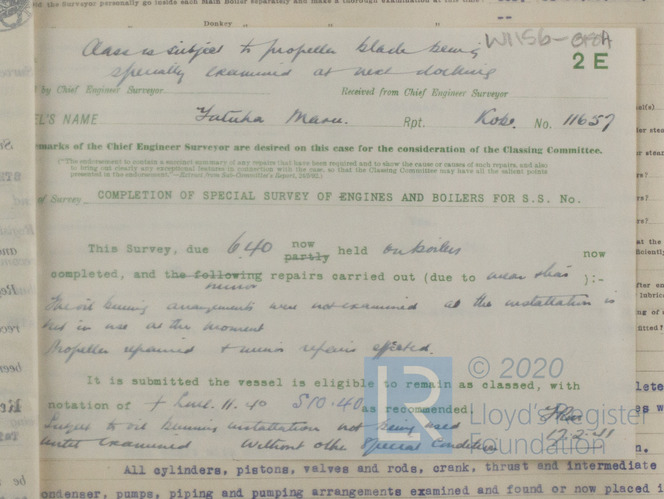 the Surveyor personally go inside each Main Boiler separately and make a thorough examination at this time?
Donkey " " " "
Class is subject to propeller blade being
specially examined at next docking
W1156-
2 E
by Chief Engineer Surveyor Received from Chief Engineer Surveyor
EL'S NAME Maru. Rpt. Kobe. No. 11657
marks of the Chief Engineer Surveyor are desired on this case for the consideration of the Classing Committee.
(The endorsement to contain a succinct summary of any repairs that have been required and to show the cause or causes of such repairs, and also
to bring out clearly any exceptional features in connection with the case, so that the Classing Committee may have all the salient points
presented in the endorsement."—Extract from Sub-Committee's Report,
of Survey COMPLETION OF SPECIAL SURVEY OF ENGINES AND BOILERS FOR S.S. No.
This Survey, due 6.40 now partly held on boilers now
completed, and the following minor repairs carried out (due to wear ):-
The oil burning arrangements were not examined as the installation is
not in use at the moment
Propeller repaired & minor repairs effected.
© 2020
It is submitted the vessel is eligible to remain as classed, with
notation of + LMC. 11.40 S10.40 as recommended.
Lloyd's Register
Foundation
LR
Subject to oil burning installation not being used
until examined Without other Special Condition
All cylinders, pistons, valves and rods, crank, thrust and intermediate
condenser, pumps, piping and pumping arrangements examined and found or now placed i